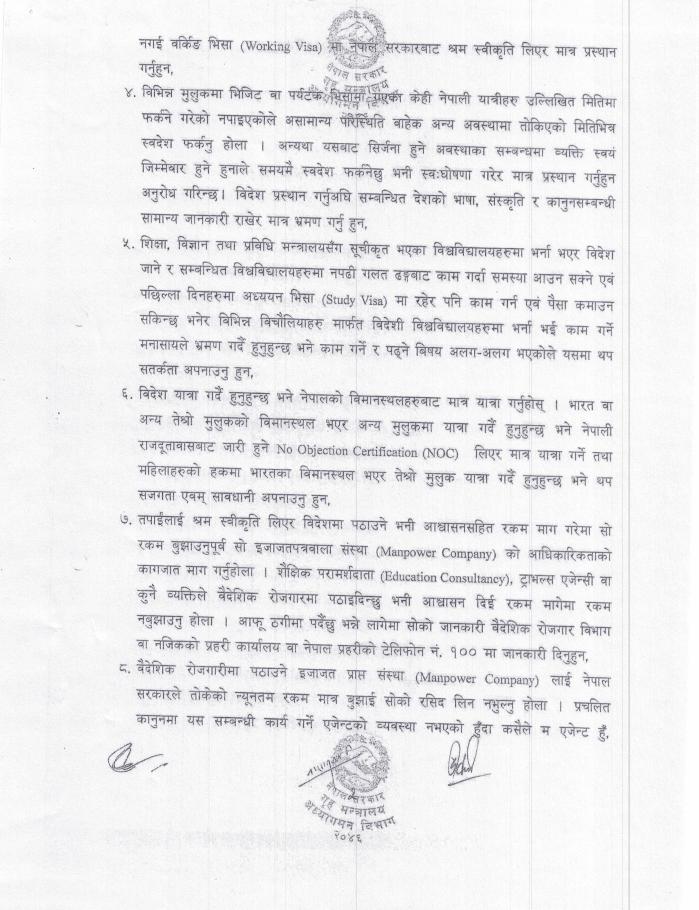 नगई वर्किङ भिसा (Working Visa) मा नेपाल सरकारबाट श्रम स्वीकृति लिएर मात्र प्रस्थान
गर्नुहुन,
४. विभिन्न मुलुकमा भिजिट वा पर्यटक भिसामा गएका केही नेपाली यात्रीहरु उल्लिखित मितिमा
फर्कने गरेको नपाइएकोले असामान्य परिस्थिति बाहेक अन्य अवस्थामा तोकिएको मितिभित्र
स्वदेश फर्कनु होला । अन्यथा यसबाट सिर्जना हुने अवस्थाका सम्बन्धमा व्यक्ति स्वयं
जिम्मेबार हुने हुनाले समयमै स्वदेश फर्कनेछु भनी स्वःघोषणा गरेर मात्र प्रस्थान गर्नुहुन
अनुरोध गरिन्छ। विदेश प्रस्थान गर्नुअघि सम्बन्धित देशको भाषा, संस्कृति र कानुनसम्बन्धी
सामान्य जानकारी राखेर मात्र भ्रमण गर्नु हुन,
५. शिक्षा, विज्ञान तथा प्रविधि मन्त्रालयसँग सूचीकृत भएका विश्वविद्यालयहरुमा भर्ना भएर विदेश
जाने र सम्बन्धित विश्वविद्यालयहरुमा नपढी गलत ढङ्गबाट काम गर्दा समस्या आउन सक्ने एवं
पछिल्ला दिनहरुमा अध्ययन भिसा (Study Visa) मा रहेर पनि काम गर्न एवं पैसा कमाउन
सकिन्छ भनेर विभिन्न विचौलियाहरु मार्फत विदेशी विश्वविद्यालयहरुमा भर्ना भई काम गर्ने
मनासायले भ्रमण गर्दै हुनुहुन्छ भने काम गर्ने र पढ्ने बिषय अलग-अलग भएकोले यसमा थप
सतर्कता अपनाउनु हुन,
६. विदेश यात्रा गर्दै हुनुहुन्छ भने नेपालको विमानस्थलहरुबाट मात्र यात्रा गर्नुहोस् । भारत वा
अन्य तेश्रो मुलुकको विमानस्थल भएर अन्य मुलुकमा यात्रा गर्दै हुनुहुन्छ भने नेपाली
राजदूतावासबाट जारी हुने No Objection Certification (NOC) लिएर मात्र यात्रा गर्ने तथा
महिलाहरुको हकमा भारतका विमानस्थल भएर तेश्रो मुलुक यात्रा गर्दै हुनुहुन्छ भने थप
सजगता एवम् सावधानी अपनाउनु हुन,
७. तपाईंलाई श्रम स्वीकृति लिएर विदेशमा पठाउने भनी आश्वासनसहित रकम माग गरेमा सो
रकम बुझाउनुपूर्व सो इजाजतपत्रवाला संस्था (Manpower Company) को आधिकारिकताको
कागजात माग गर्नुहोला । शैक्षिक परामर्शदाता (Education Consultancy), ट्राभल्स एजेन्सी वा
कुनै व्यक्तिले वैदेशिक रोजगारमा पठाइदिन्छु भनी आश्वासन दिई रकम मागेमा रकम
नबुझाउनु होला । आफू ठगीमा पर्दैछु भन्ने लागेमा सोको जानकारी वैदेशिक रोजगार विभाग
वा नजिकको प्रहरी कार्यालय वा नेपाल प्रहरीको टेलिफोन नं. १०० मा जानकारी दिनुहुन,
८. वैदेशिक रोजगारीमा पठाउने इजाजत प्राप्त संस्था (Manpower Company) लाई नेपाल
सरकारले तोकेको न्यूनतम रकम मात्र बुझाई सोको रसिद लिन नभुल्नु होला । प्रचलित
कानुनमा यस सम्बन्धी कार्य गर्ने एजेन्टको व्यवस्था नभएको हुँदा कसैले म एजेन्ट हुँ,
नेपाल सरकार
गृह मन्त्रालय
अध्यागमन विभाग
२०४६